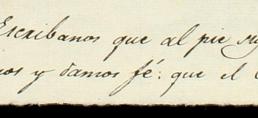 Escribanos que al pie
nos y damos fé: que el